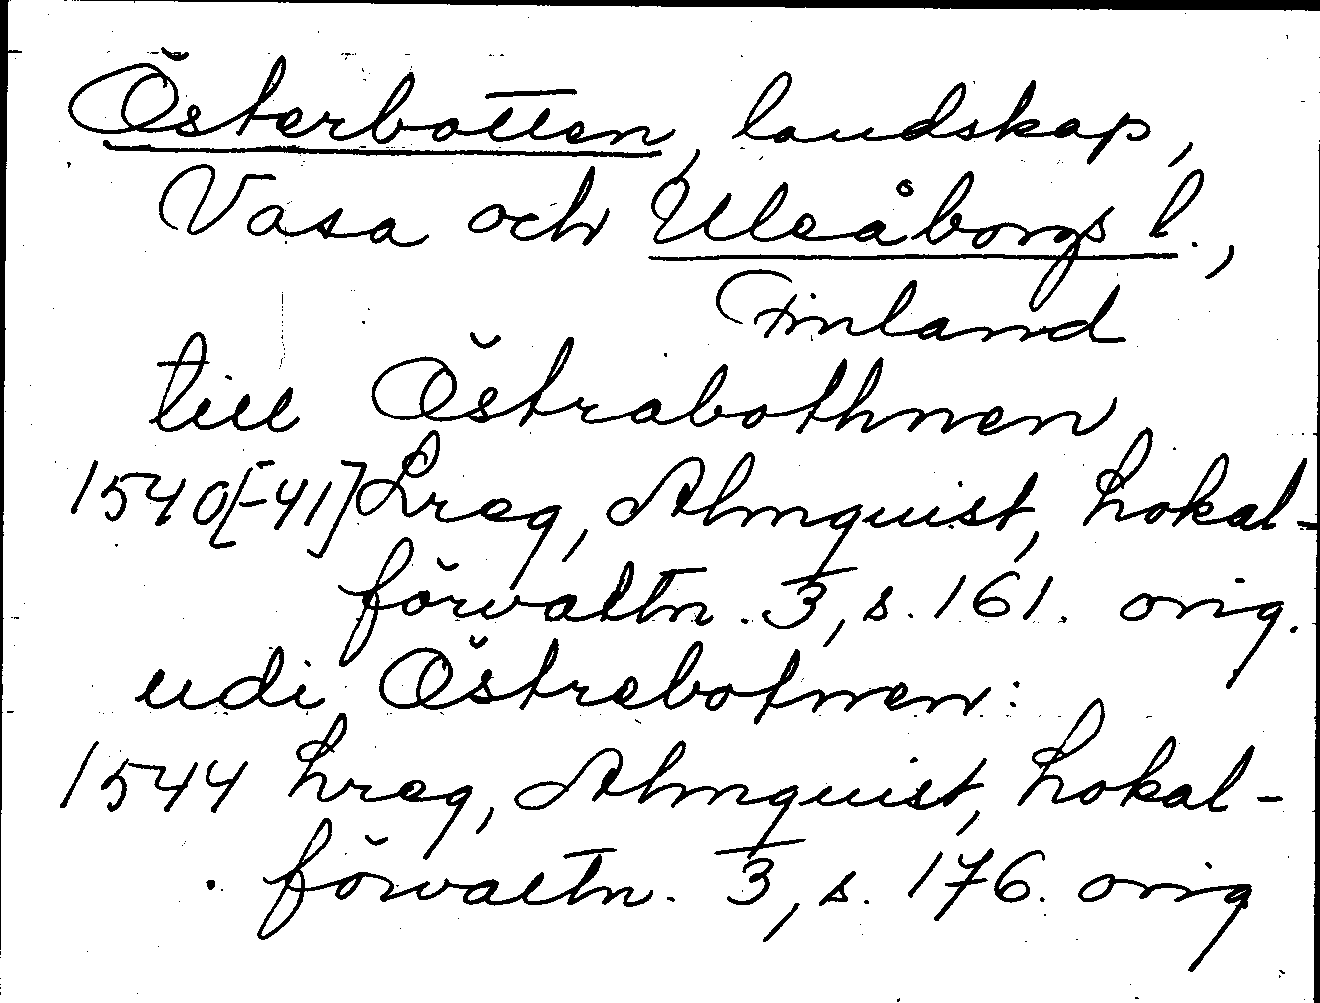 Österbotten, landskap,
Vasa och Uleåborgs l.,
Finland
till Östrabothnen
1540[-41] Lreg, Almquist, Lokal-
förvaltn. 3, s. 161. orig.
udi Östrebotnen:
1544 Lreg, Almquist, Lokal-
förvaltn. 3, s. 176. orig